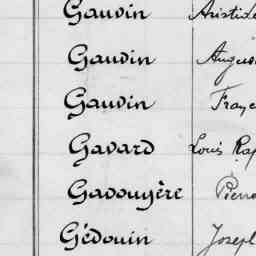 Gauvin Aristide
Gauvin Augus
Gauvin Franç
Gavard Louis Rap
Gavouyère Pierre
Gédouin Joseph